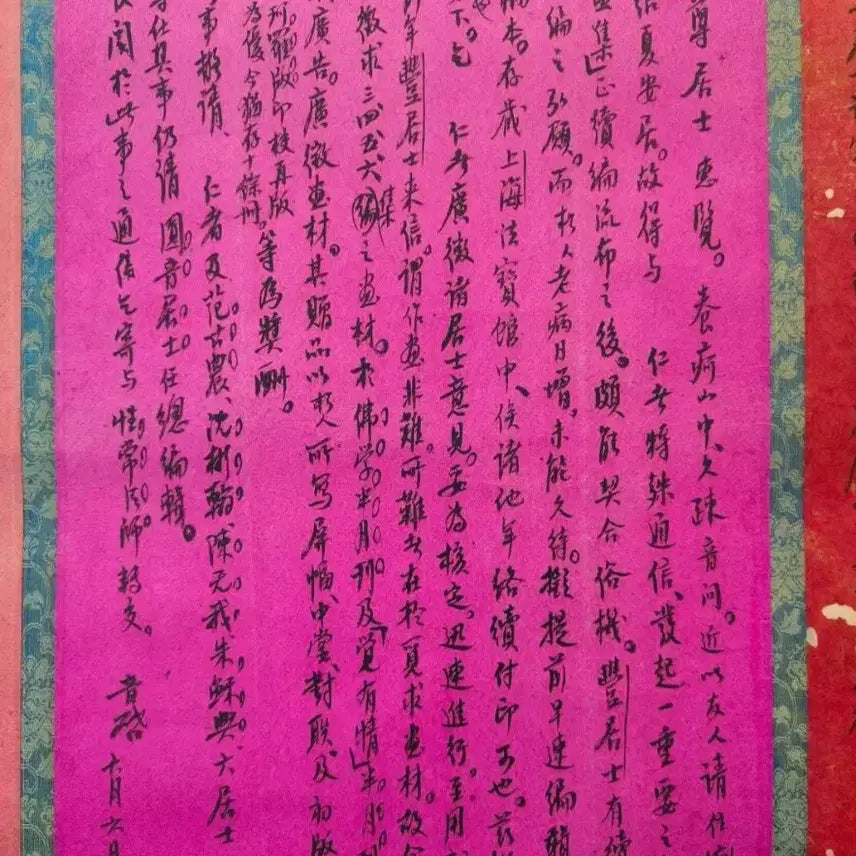 尊居士惠覽。養痾山中、久疎音問。近以友人請住
結夏安居。故得與 仁者特殊通信、發起一重要之
畫集」正續編流布之後。頗能契合俗機。豐居士有續
編之弘願。而朽人老病日增。未能久待。擬提前早速編輯
稿本。存藏上海法寶館中、俟諸他年絡續付印可也。茲
下。乞 仁者廣徵諸居士意見。妥為核定。迅速進行。至用
年豐居士来信。謂作畫非難。所難者在於覓求畫材。故今
徵求三四五六集之畫材。於佛學半月刊及「覺有情」半月刊
廣告。廣徵畫材。其贈品以朽人所寫屏幅、中堂、對聯、及初版
刊。羅版印較再版
為優今猶存十餘冊。等為獎酬。
事敬請、 仁者及范古農、沈彬翰、陳无我、朱穌典、六居士
任其事仍請 圓音居士任總編輯。
關於此事之通信乞寄與性常法師轉交。 音啓 六月六日